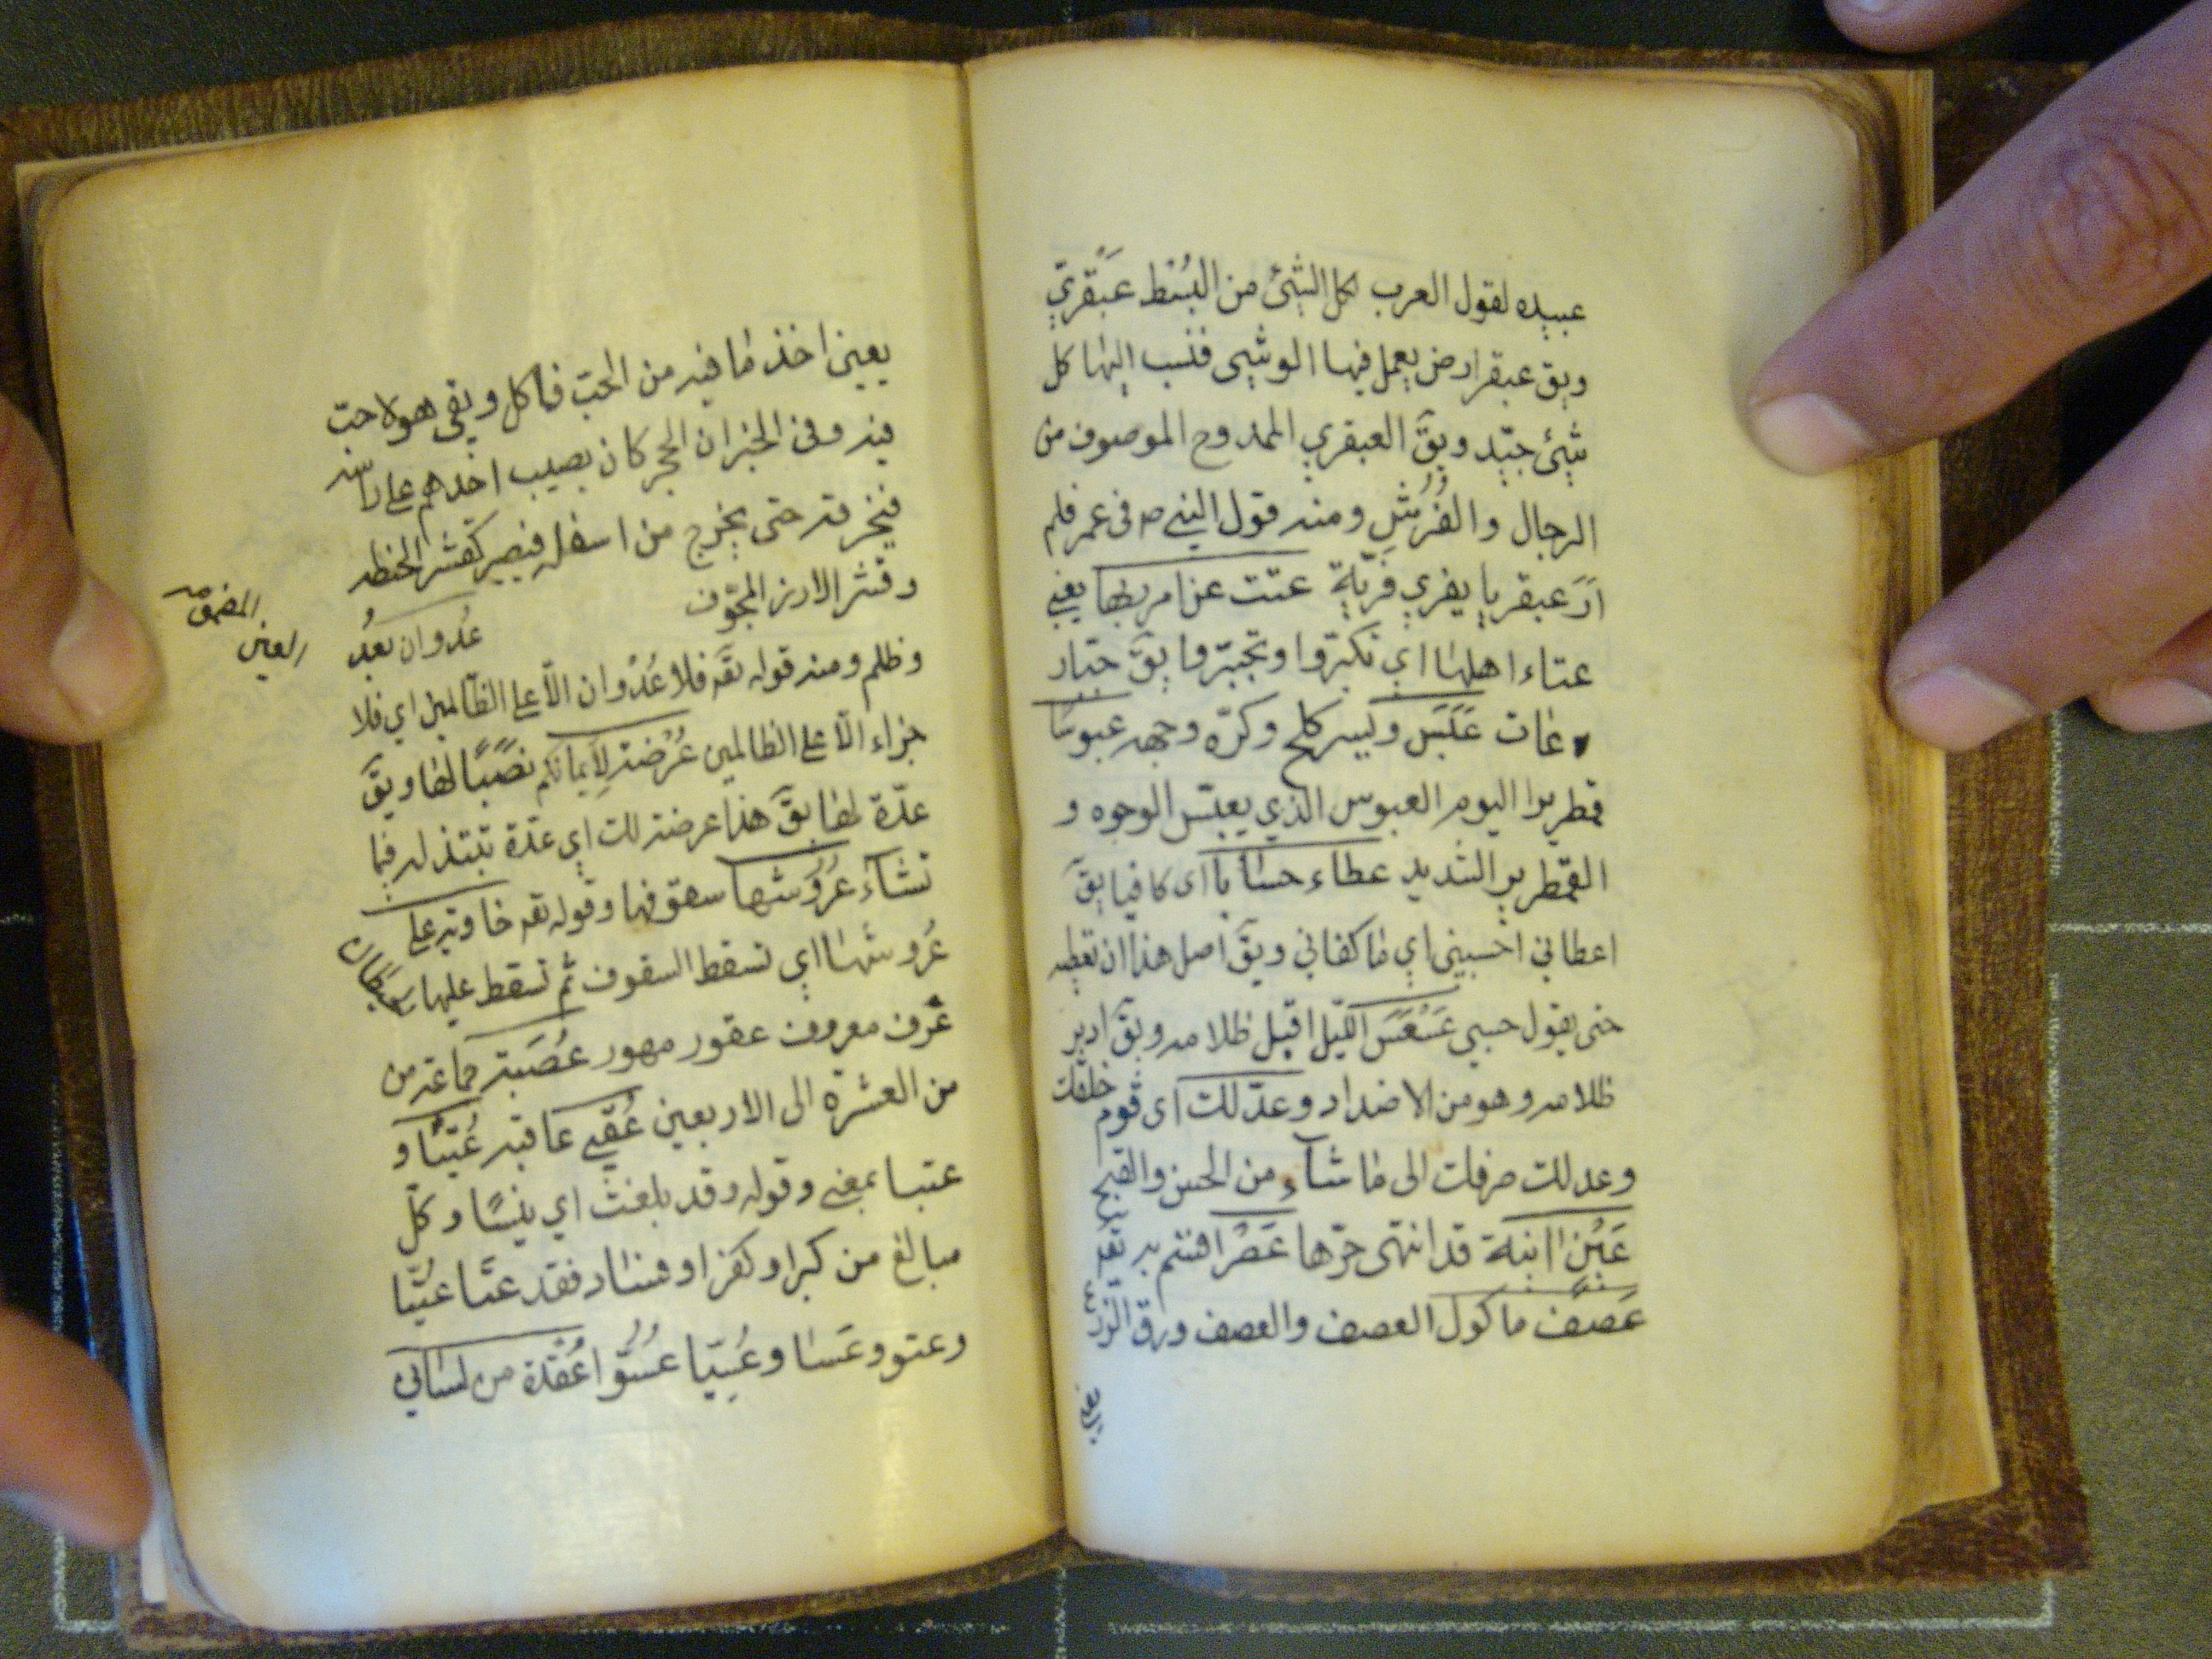 عبيده لقول العرب لكل الشئ من البُسُط عَبقَريّ
ويق عبقر ارض يعمل فيها الوشى فنسب اليها كل
شئ جيّد ويقَ العبقري الممدوح الموصوف من
الرجال والفُرُش ومنه قول النبي ص فى عمر فلم
ارَ عبقريا يفري فَريّة عتت عن امر ربها يعني
عتاء اهلها اي تكبّروا وتجبّروا يقَ جبّار
عات عَبَسَ وبسر كلح وكرّه وجهه عبوسًا
قمطريرا اليوم العبوس الذي يعبّس الوجوه و
القمطرير الشديد عطاء حسابا اى كافيا يقَ
اعطاني احسبنى اي ما كفاني ويقَ اصل هذا ان تعطيه
حتى يقول حسبي عَسْعَسَ الليل اقبل ظلامه ويقَ ادبر
ظلامه وهو من الاضداد وعدّلك اى قوم خلقك
وعدلك صرفك الى ما شاء من الحسن والقبح
عَيْن انية قد انتهى حرّها عَصْر اقسم به تعه
عَصف ماكول العصف والعصف ورق الزرع
يعنى
يعنى اخذ ما فيه من الحبّ فاكل وبقى هو لا حبّ
فيه وفى الخبر ان الحجر كان يصيب احدهم على راسه
فيخرقه حتى يخرج من اسفله فيصير كقشر الحنطه
وقشر الارز المجوّف عُدوان تعدٍ
المضمومه
العين
وظلم ومنه قوله تقه فلا عُدْوان الّا على الظّالمين اي فلا
جزاء الّا على الظالمين عُرْضة لِأَيمانكم نصْبًا لها ويقَ
عدّة لها يقَ هذا عرضة لك اي عدّة تبتذله فيما
تشاء عُرُوشها سقوفها وقوله تعه خاوية على
عُروشها اي تسقط السقوف ثم تسقط عليها
عُرْف معروف عقور مهور عُصْبة جماعة من
من العشرة الى الاربعين عُقْبي عاقبه عُتيّا و
عتيا بمعنى وقوله وقد بلغت اي يبسًا وكلّ
مبالغ من كبر او كفر او فساد فقد عتا عُتيّا
وعتو وعَسا وعُسِيّا عُسُوّا عُقْدة من لساني